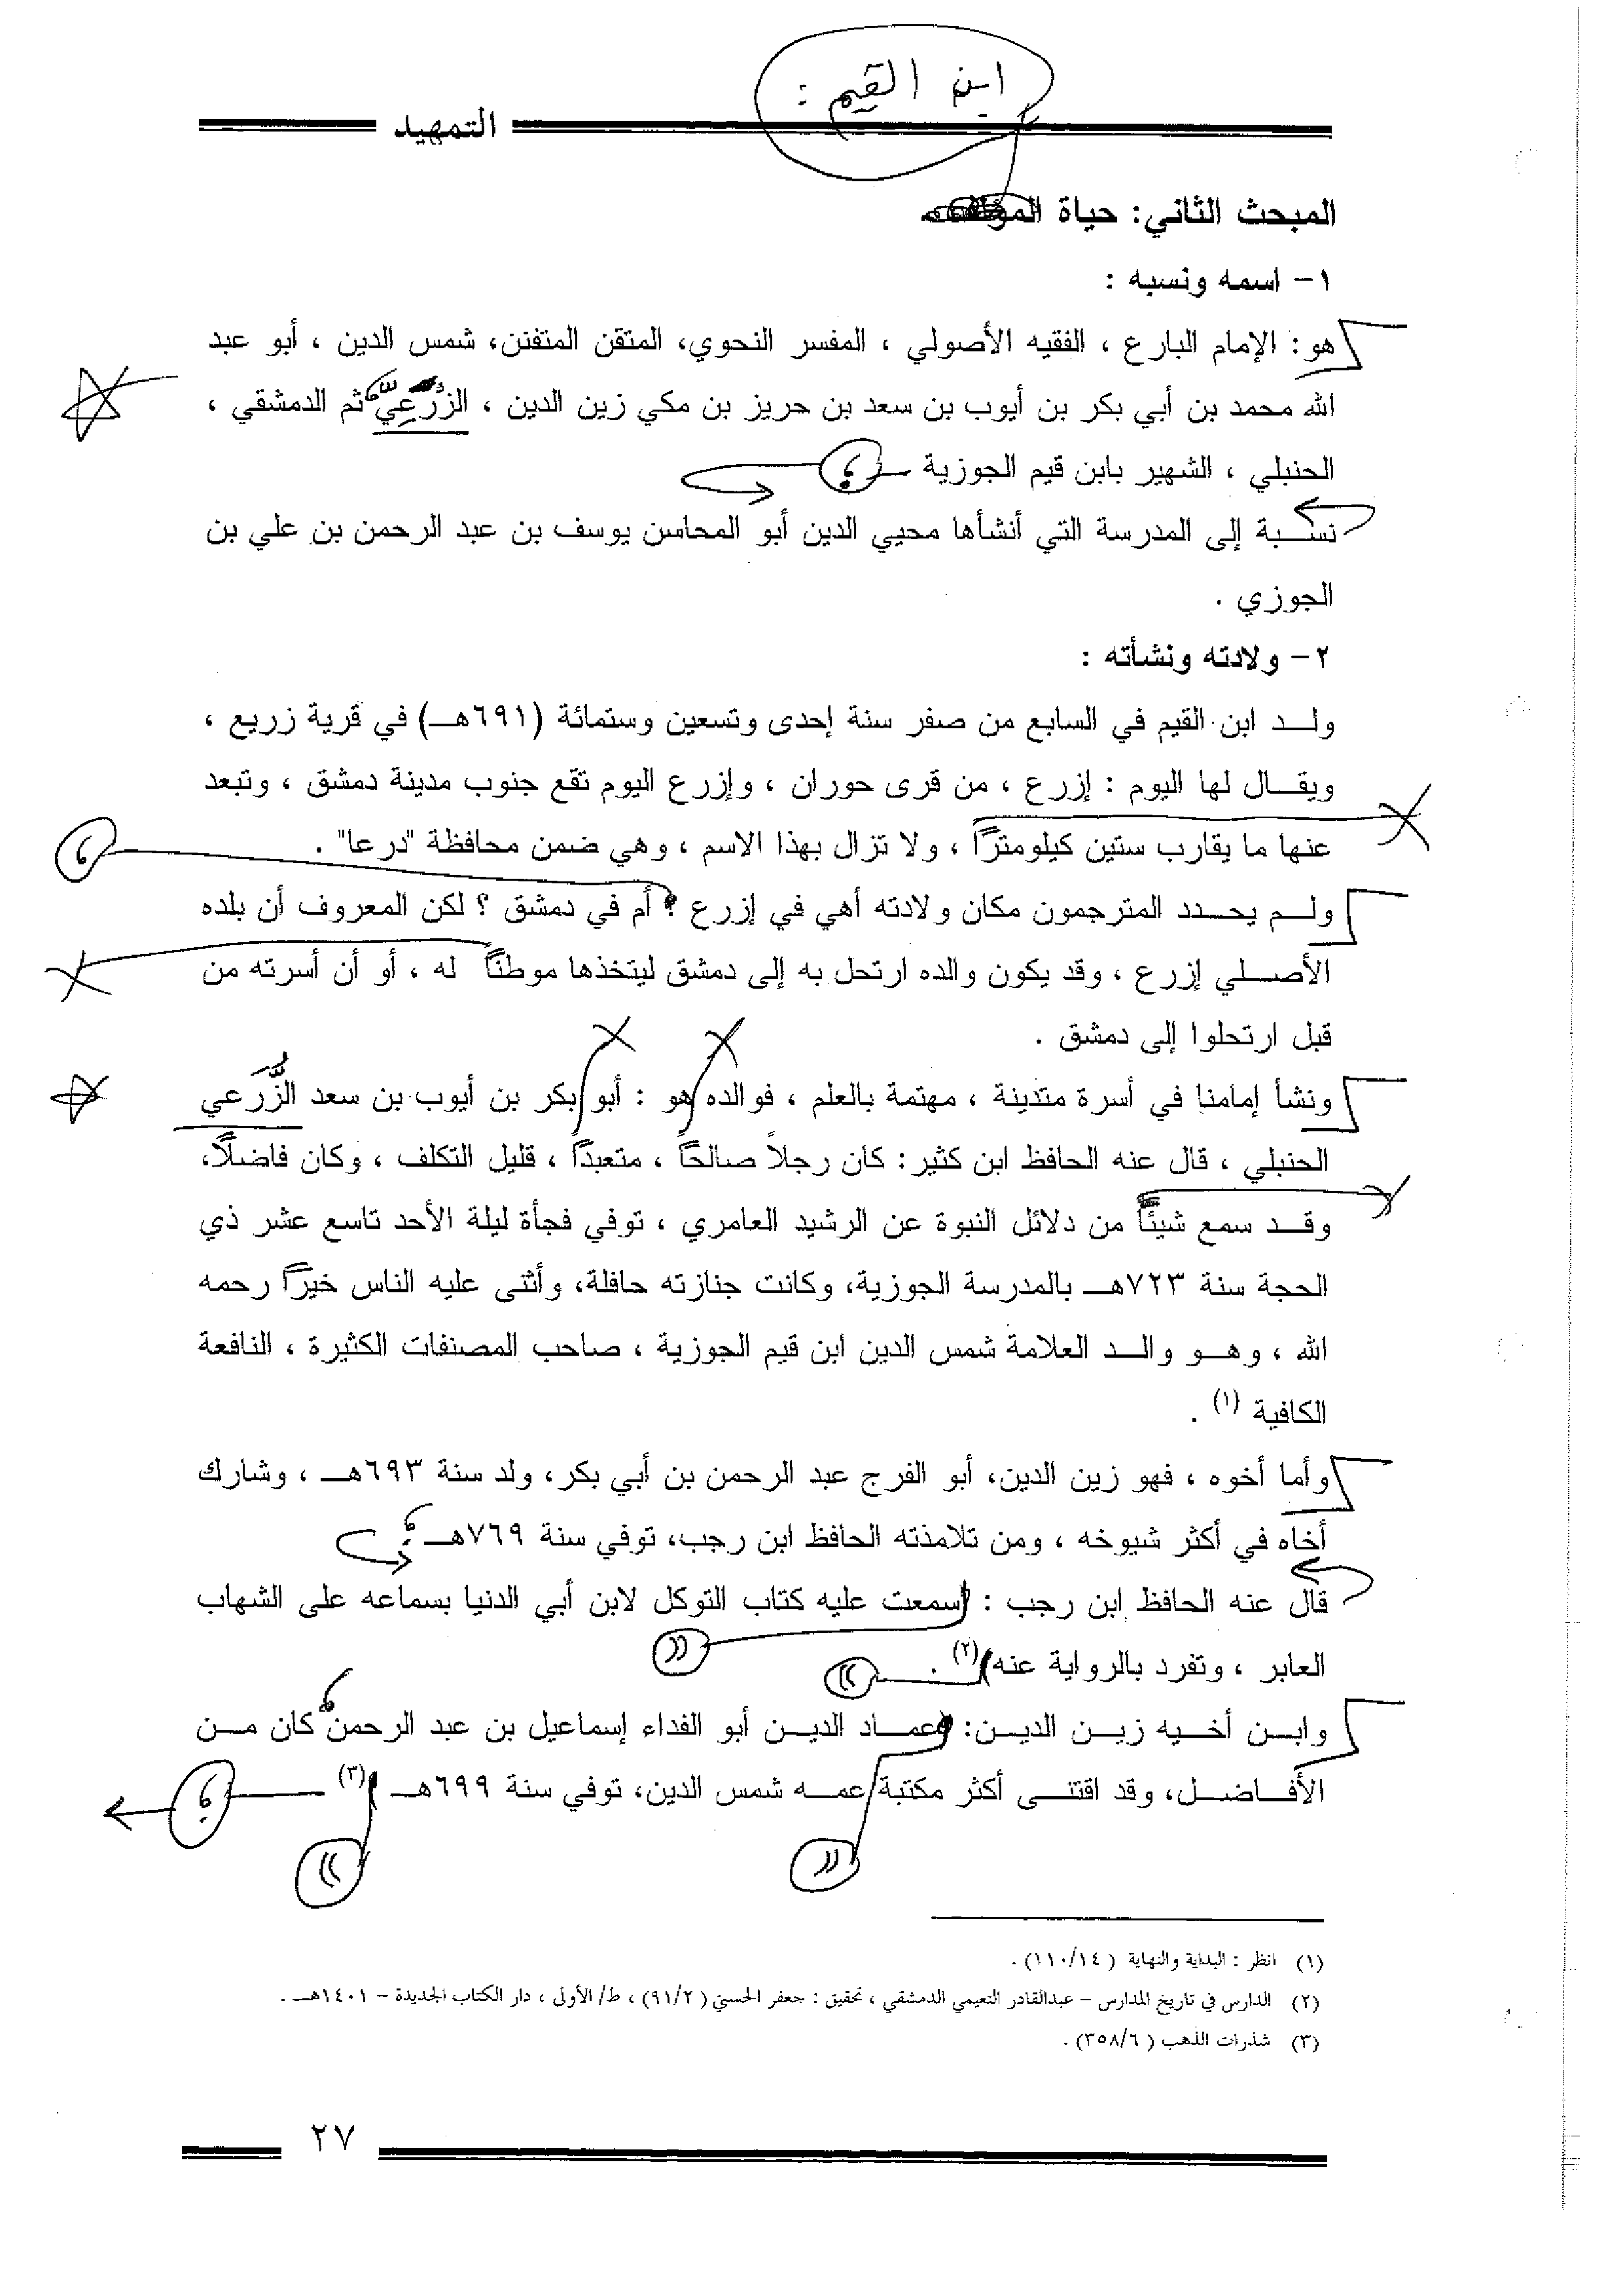 ابن القيم :
التمهيد
المبحث الثاني: حياة
١- اسمه ونسبه :
هو: الإمام البارع ، الفقيه الأصولي ، المفسر النحوي، المتقن المتفنن، شمس الدين ، أبو عبد
الله محمد بن أبي بكر بن أيوب بن سعد بن حريز بن مكي زين الدين ، الزُّرَعِيّ ثم الدمشقي ،
الحنبلي ، الشهير بابن قيم الجوزية ؛
نسبة إلى المدرسة التي أنشأها محيي الدين أبو المحاسن يوسف بن عبد الرحمن بن علي بن
الجوزي .
٢- ولادته ونشأته :
ولد ابن القيم في السابع من صفر سنة إحدى وتسعين وستمائة (٦٩١هـ) في قرية زريع ،
ويقال لها اليوم : إزرع ، من قرى حوران ، وإزرع اليوم تقع جنوب مدينة دمشق ، وتبعد
عنها ما يقارب ستين كيلومتراً ، ولا تزال بهذا الاسم ، وهي ضمن محافظة "درعا" .
ولم يحدد المترجمون مكان ولادته أهي في إزرع ؟ أم في دمشق ؟ لكن المعروف أن بلده
الأصلي إزرع ، وقد يكون والده ارتحل به إلى دمشق ليتخذها موطناً له ، أو أن أسرته من
قبل ارتحلوا إلى دمشق .
ونشأ إمامنا في أسرة متدينة ، مهتمة بالعلم ، فوالده هو : أبو بكر بن أيوب بن سعد الزُّرعي
الحنبلي ، قال عنه الحافظ ابن كثير: كان رجلاً صالحاً ، متعبداً ، قليل التكلف ، وكان فاضلاً،
وقد سمع شيئاً من دلائل النبوة عن الرشيد العامري ، توفي فجأة ليلة الأحد تاسع عشر ذي
الحجة سنة ٧٢٣هـ بالمدرسة الجوزية، وكانت جنازته حافلة، وأثنى عليه الناس خيراً رحمه
الله ، وهو والد العلامة شمس الدين ابن قيم الجوزية ، صاحب المصنفات الكثيرة ، النافعة
الكافية (١) .
وأما أخوه ، فهو زين الدين، أبو الفرج عبد الرحمن بن أبي بكر، ولد سنة ٦٩٣هـ ، وشارك
أخاه في أكثر شيوخه ، ومن تلامذته الحافظ ابن رجب، توفي سنة ٧٦٩هـ ؛
قال عنه الحافظ ابن رجب : سمعت عليه كتاب التوكل لابن أبي الدنيا بسماعه على الشهاب
((
العابر ، وتفرد بالرواية عنه (٢) .
))
وابن أخيه زين الدين: عماد الدين أبو الفداء إسماعيل بن عبد الرحمن كان من
الأفاضل، وقد اقتنى أكثر مكتبة عمه شمس الدين، توفي سنة ٦٩٩هـ (٣) ؛
(( ))
(١) انظر : البداية والنهاية (١١٠/١٤) .
(٢) الدارس في تاريخ المدارس – عبدالقادر النعيمي الدمشقي ، تحقيق : جعفر الحسني (٩١/٢) ، ط/ الأولى ، دار الكتاب الجديدة – ١٤٠١هـ .
(٣) شذرات الذهب (٣٥٨/٦) .
٢٧